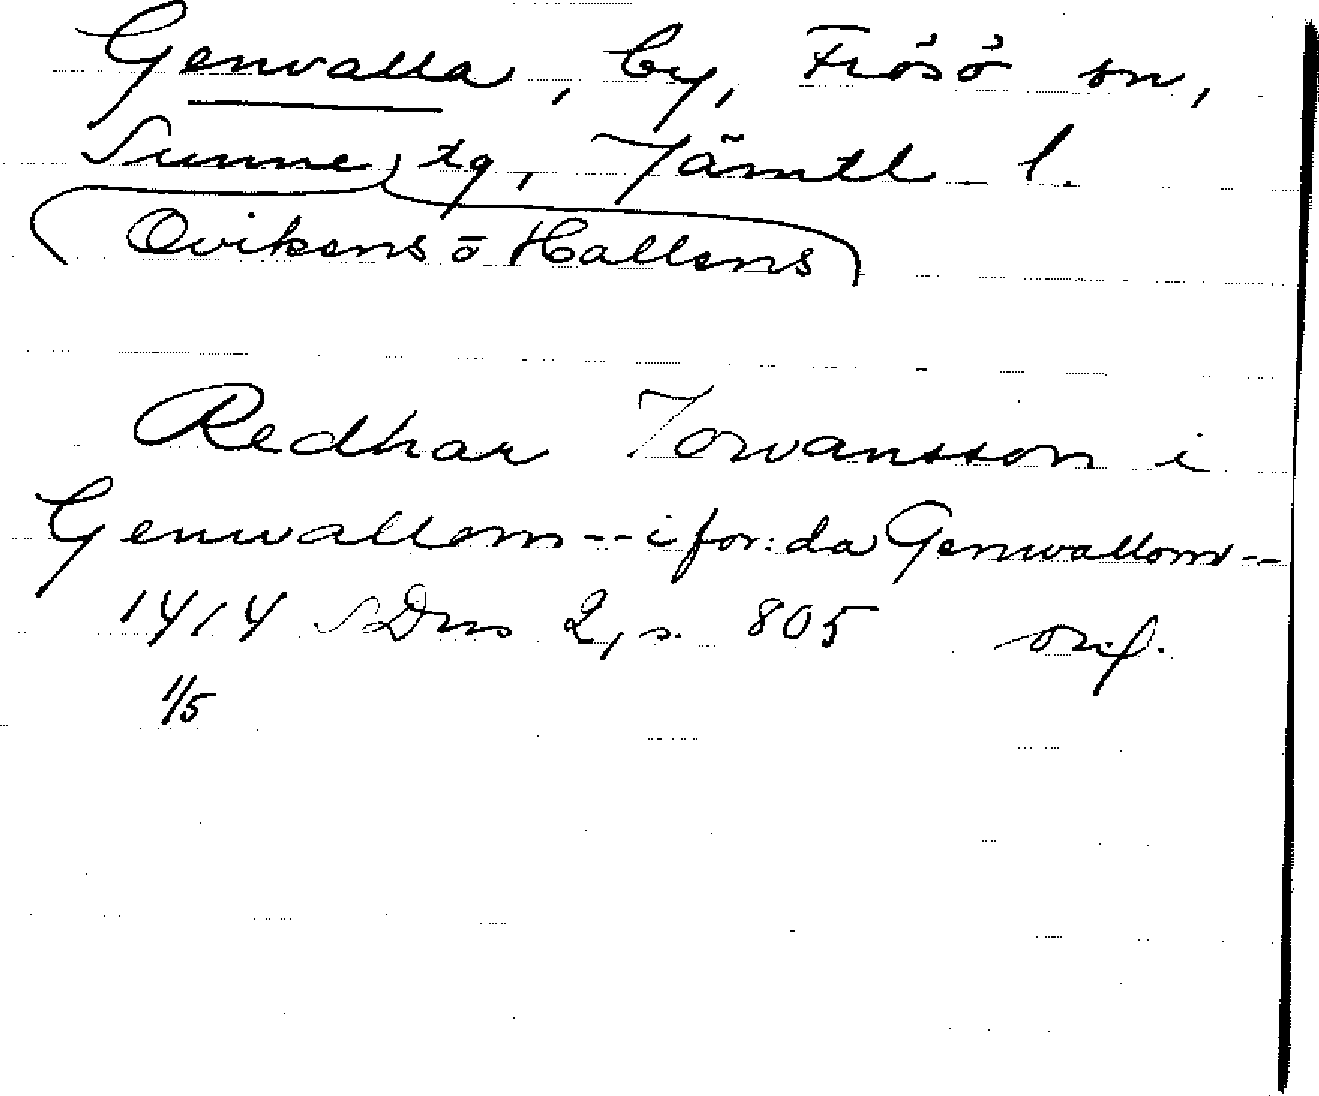 Genvalla, by, Frösö sn,
Sunne tg, Jämtl. l.
Ovikens o Hallens
Redhar Jowansson i
Genwallom -- i for:da Genwallom --
1414 SDns 2, s. 805 or.
1/5